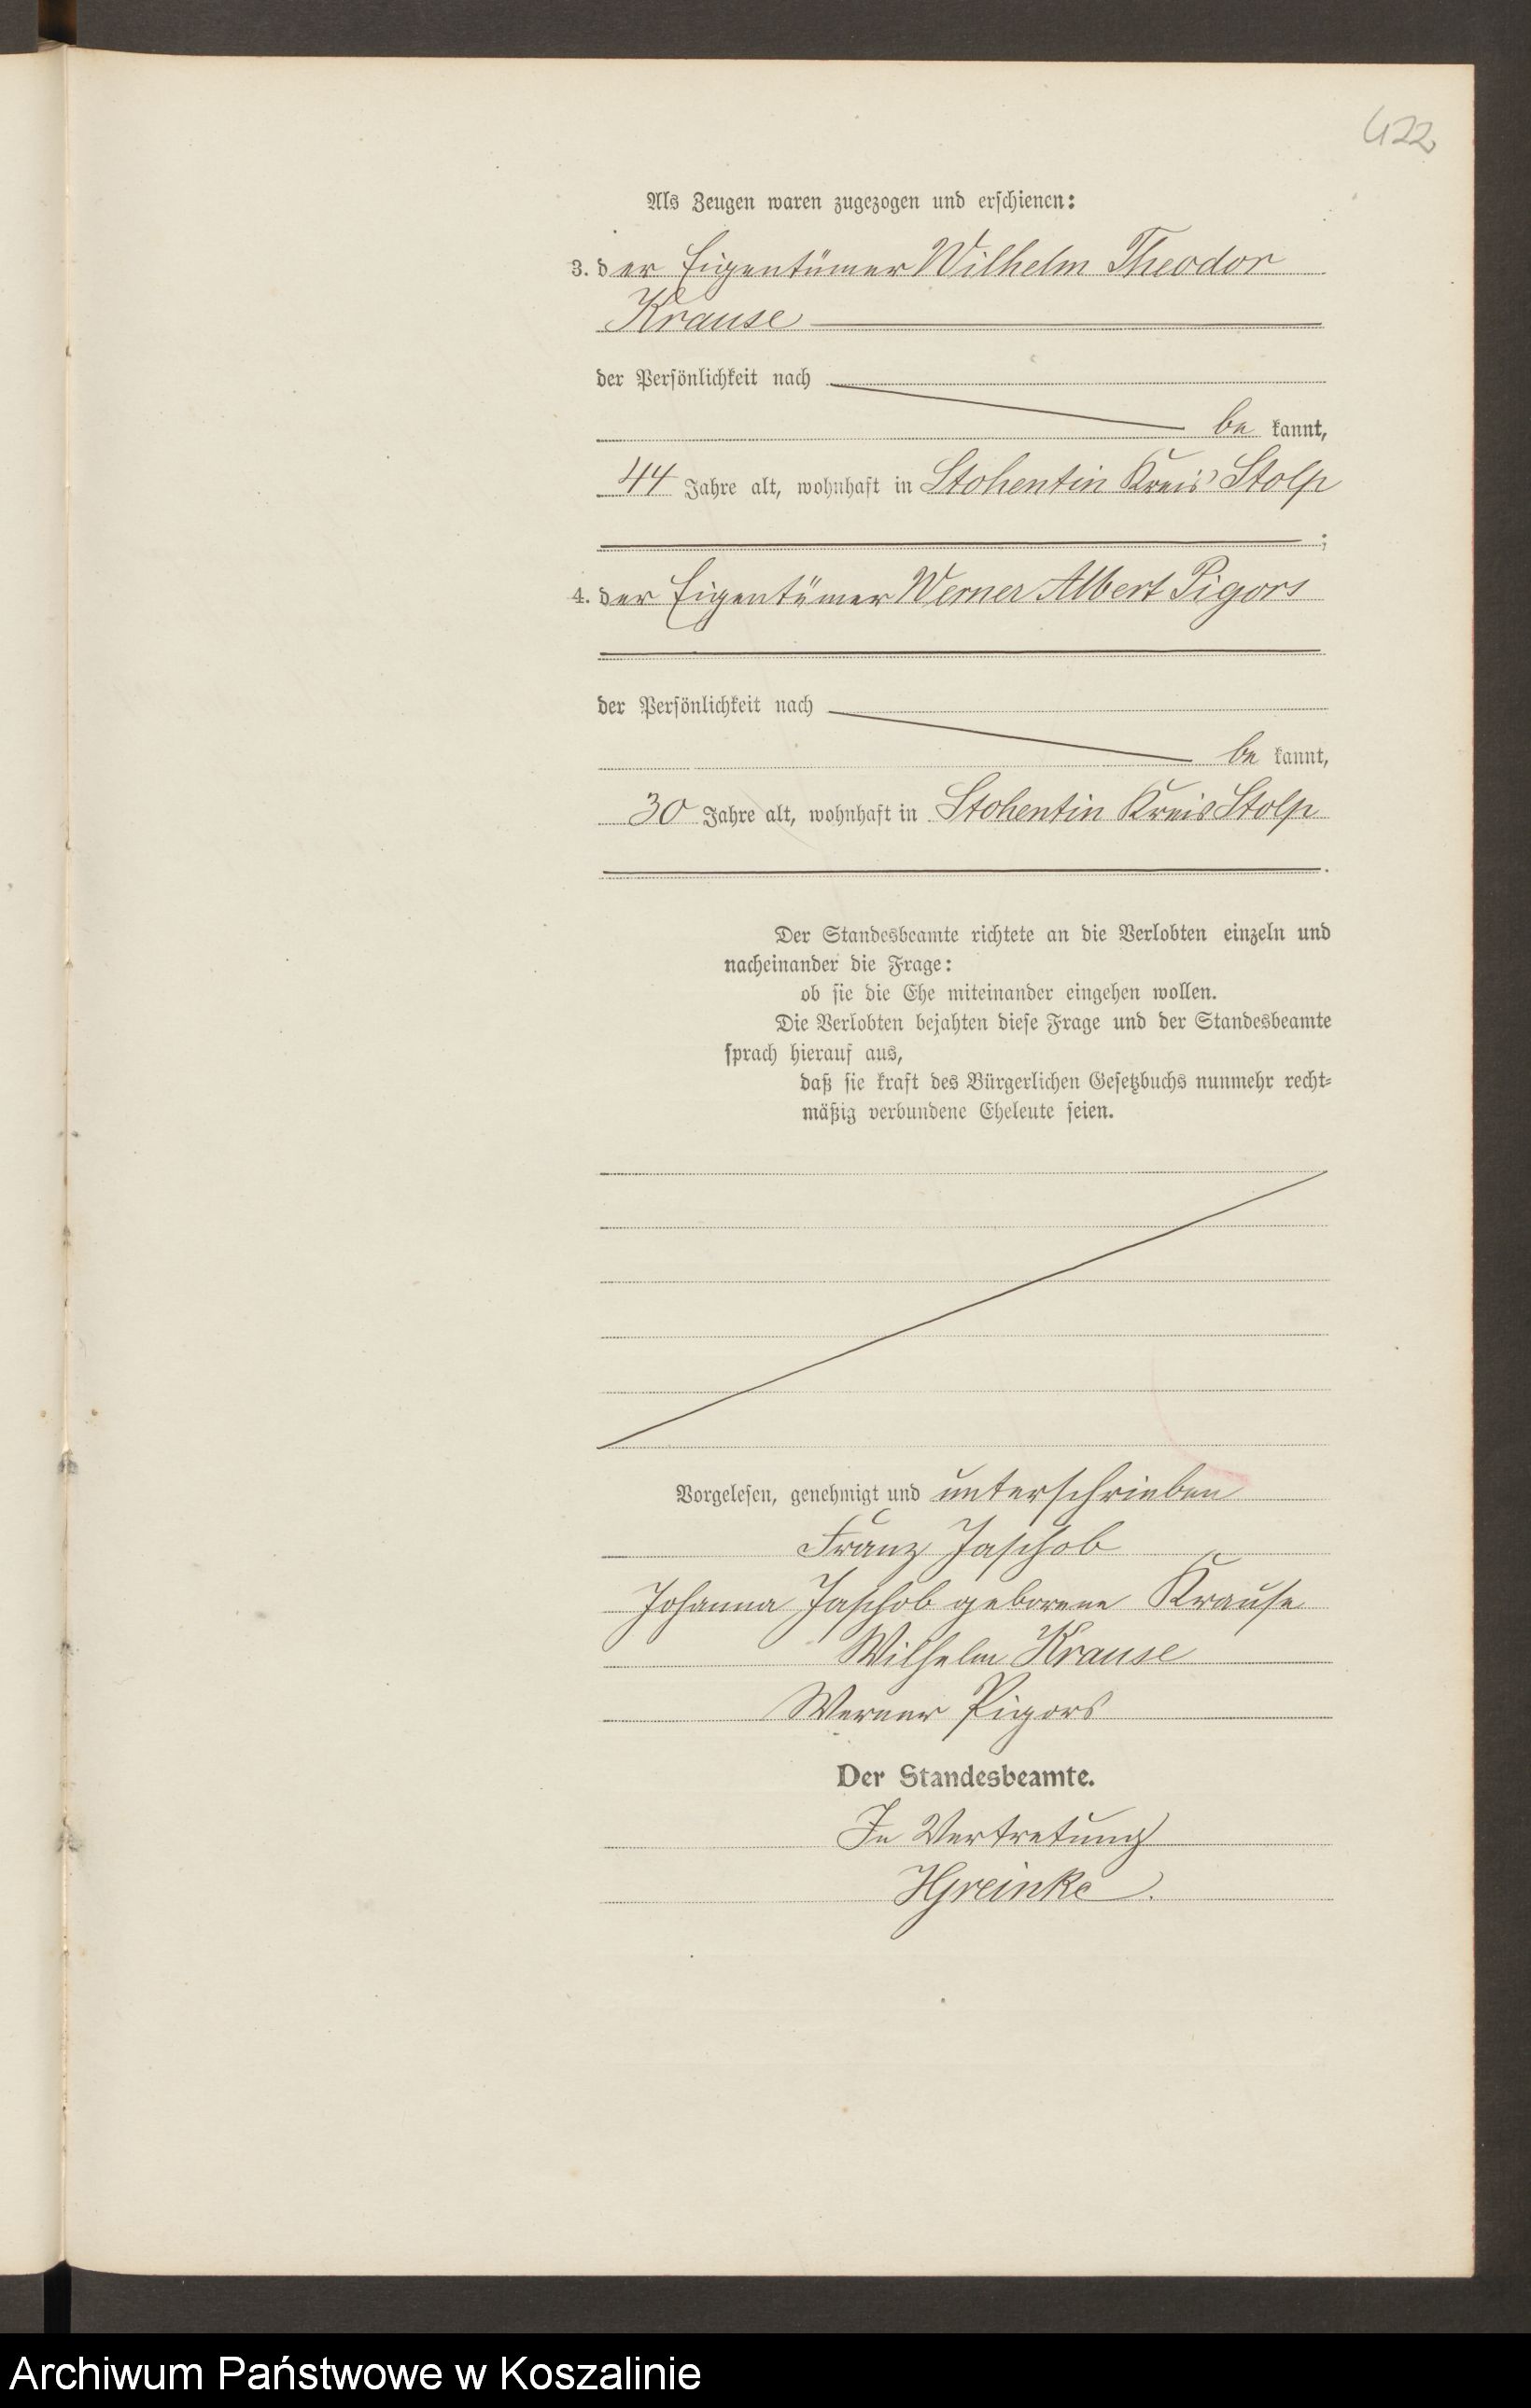 422
Als Zeugen waren zugezogen und erschienen:
3. der Eigentümer Wilhelm Theodor
Krause
der Persönlichkeit nach
be kannt,
44 Jahre alt, wohnhaft in Stohentin Kreis Stolp
;
4. der Eigentümer Werner Albert Pigors
der Persönlichkeit nach
be kannt,
30 Jahre alt, wohnhaft in Stohentin Kreis Stolp
.
Der Standesbeamte richtete an die Verlobten einzeln und
nacheinander die Frage:
ob sie die Ehe miteinander eingehen wollen.
Die Verlobten bejahten diese Frage und der Standesbeamte
sprach hierauf aus,
daß sie kraft des Bürgerlichen Gesetzbuchs nunmehr recht-
mäßig verbundene Eheleute seien.
Vorgelesen, genehmigt und unterschrieben
Franz Jaschob
Johanna Jaschob geborene Krause
Wilhelm Krause
Werner Pigors
Der Standesbeamte.
In Vertretung
HGreinke.
Archiwum Państwowe w Koszalinie